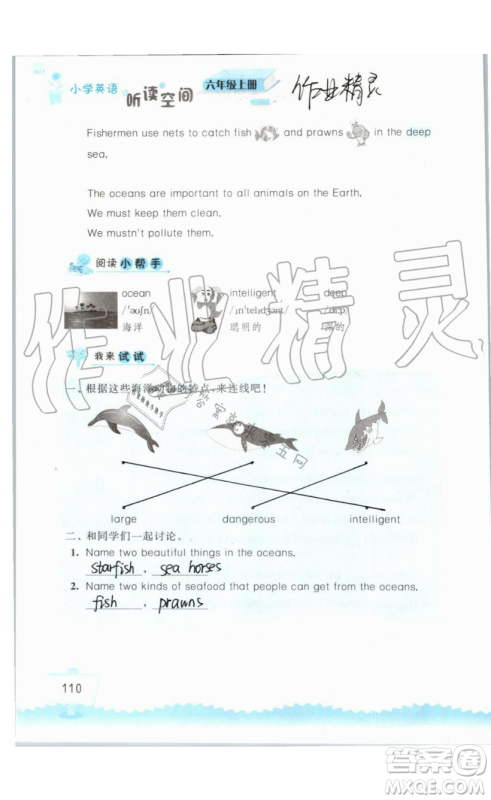 小学英语 听读空间 六年级上册 作业精灵
Fishermen use nets to catch fish and prawns in the deep
sea.
The oceans are important to all animals on the Earth.
We must keep them clean.
We mustn't pollute them.
阅读小帮手
ocean intelligent deep
/ˈəʊʃn/ /ɪnˈtelɪdʒənt/ /diːp/
海洋 聪明的 深的
我来试试
一、根据这些海洋动物的特点，来连线吧！
large dangerous intelligent
二、和同学们一起讨论。
1. Name two beautiful things in the oceans.
starfish , sea horses
2. Name two kinds of seafood that people can get from the oceans.
fish , prawns
110
作业精灵
答案圈
MXQE.COM